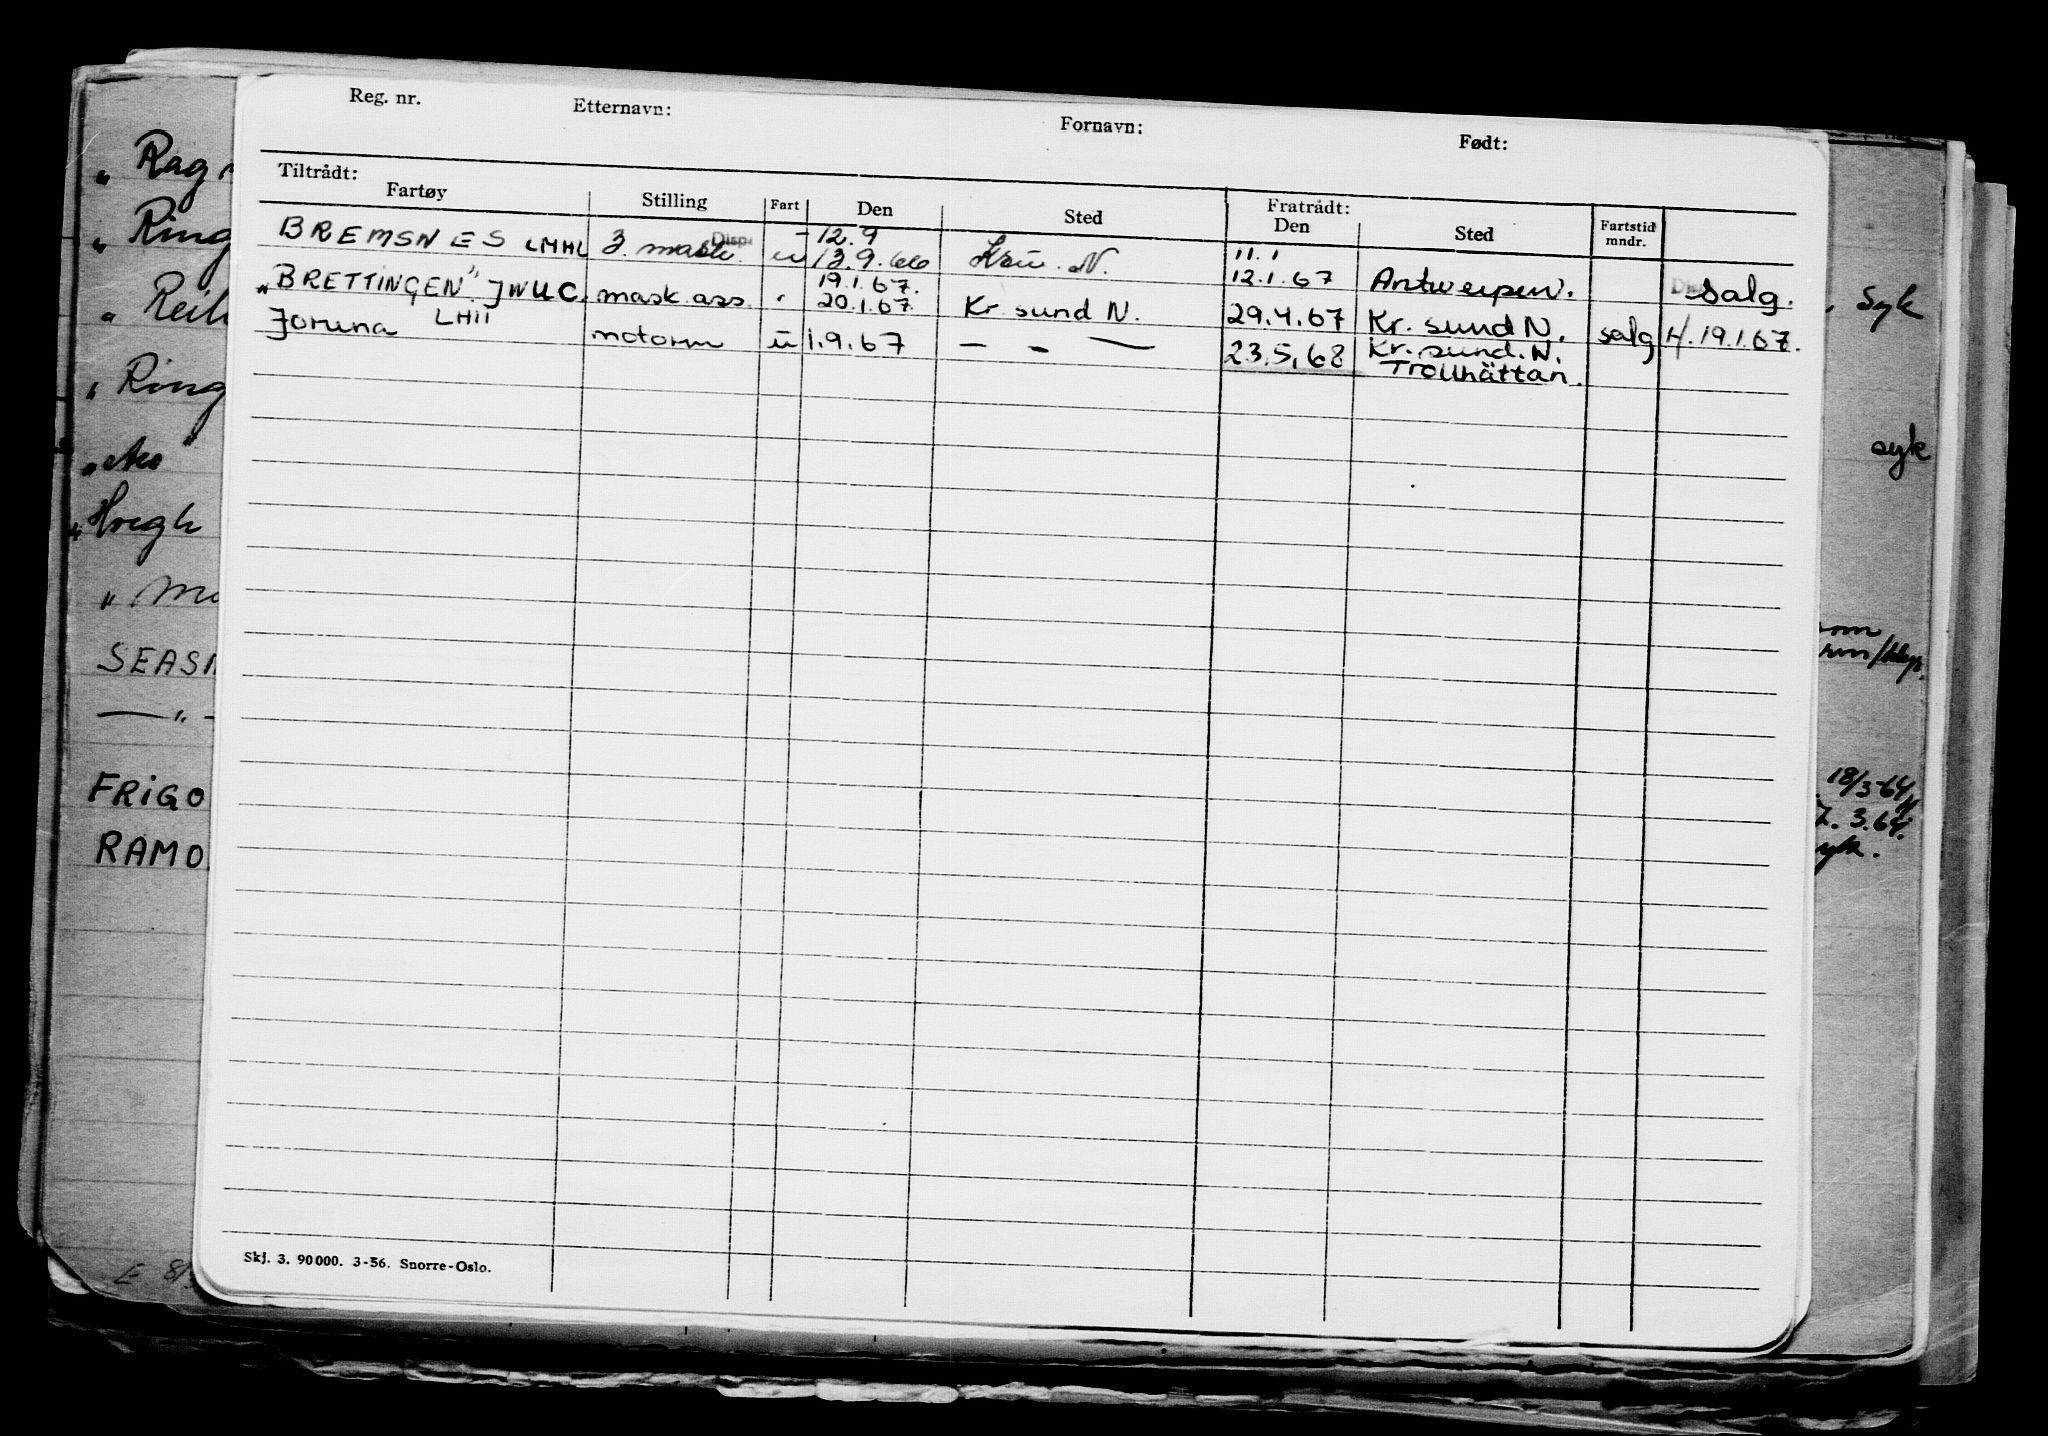 Reg. nr. Etternavn: Fornavn: Født:
Tiltrådt: Fratrådt:
Fartøy Stilling Fart Den Sted Den Sted Fartstid mndr.
BREMSNES LMHL 3. mask. Disp. u 12.9 13.9.66 Krsu. N. 11.1 12.1.67 Antwerpen. salg.
"BRETTINGEN" JWUC. mask.ass. " 19.1.67. 20.1.67. Kr. sund N. 29.4.67 Kr. sund N. salg 19.1.67.
Joruna LHII motorm u 1.9.67 — - — 23.5.68 Kr. sund. N. Trollhättan.
Skj. 3. 90000. 3-56. Snorre-Oslo.
" Rag
" Ring
" Reih
" Ring
"Höegh
SEAS
— " -
FRIGO
RAMO
syk
syk
18/3-64
3.64.
syk.